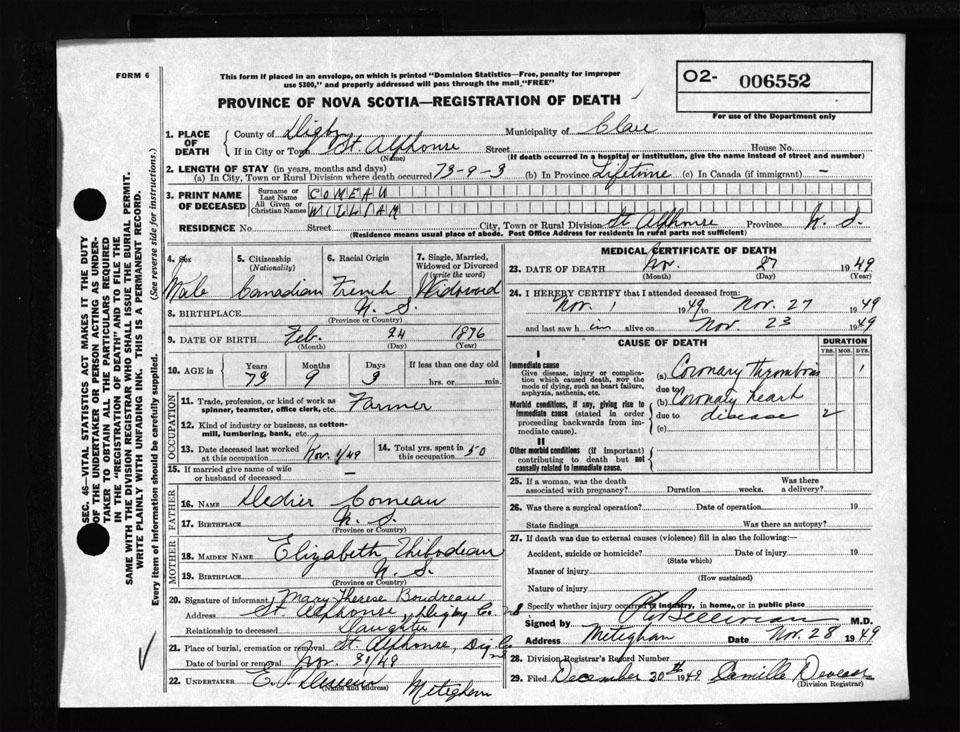 FORM 6
This form if placed in an envelope, on which is printed "Dominion Statistics—Free, penalty for improper
use $300," and properly addressed will pass through the mail "FREE"
PROVINCE OF NOVA SCOTIA—REGISTRATION OF DEATH
O2- 006552
For use of the Department only
1. PLACE OF DEATH
County of Digby Municipality of Clare
If in City or Town St. Alphonse Street House No.
(Name) (If death occurred in a hospital or institution, give the name instead of street and number)
2. LENGTH OF STAY (in years, months and days)
(a) In City, Town or Rural Division where death occurred 73-9-3 (b) In Province Lifetime (c) In Canada (if immigrant) —
3. PRINT NAME OF DECEASED
Surname or Last Name COMEAU
All Given or Christian Names WILLIAM
RESIDENCE No. Street City, Town or Rural Division St Alphonse Province N. S.
(Residence means usual place of abode. Post Office Address for residents in rural parts not sufficient)
4. Sex 5. Citizenship (Nationality) 6. Racial Origin 7. Single, Married, Widowed or Divorced (write the word)
Male Canadian French Widowed
8. BIRTHPLACE N. S.
(Province or Country)
9. DATE OF BIRTH Feb. 24 1876
(Month) (Day) (Year)
10. AGE in Years Months Days If less than one day old
73 9 3 hrs. or min.
OCCUPATION
11. Trade, profession, or kind of work as spinner, teamster, office clerk, etc. Farmer
12. Kind of industry or business, as cotton-mill, lumbering, bank, etc.
13. Date deceased last worked at this occupation Nov. 1/49 14. Total yrs. spent in this occupation 50
15. If married give name of wife or husband of deceased —
FATHER
16. NAME Dedier Comeau
17. BIRTHPLACE N. S.
(Province or Country)
MOTHER
18. MAIDEN NAME Elizabeth Thibodeau
19. BIRTHPLACE N. S.
(Province or Country)
20. Signature of informant Mary Therese Boudreau
Address St. Alphonse, Digby Co. NS
Relationship to deceased Daughter
21. Place of burial, cremation or removal St. Alphonse, Dig. Co
Date of burial or removal Nov. 30/49
22. UNDERTAKER Meteghan
(Name and address)
MEDICAL CERTIFICATE OF DEATH
23. DATE OF DEATH Nov. 27 1949
(Month) (Day) (Year)
24. I HEREBY CERTIFY that I attended deceased from:
Nov. 1 1949 to Nov. 27 1949
and last saw h im alive on Nov. 23 1949
CAUSE OF DEATH DURATION
YRS. MOS. DYS.
I
Immediate cause
Give disease, injury or complication which caused death, not the mode of dying, such as heart failure, asphyxia, asthenia, etc.
(a) Coronary thrombosis 1
due to
Morbid conditions, if any, giving rise to immediate cause (stated in order proceeding backwards from immediate cause).
(b) Coronary heart
due to disease 2
(c)
II
Other morbid conditions (if important) contributing to death but not causally related to immediate cause.
25. If a woman, was the death associated with pregnancy? Duration weeks. Was there a delivery?
26. Was there a surgical operation? Date of operation 19
State findings Was there an autopsy?
27. If death was due to external causes (violence) fill in also the following:—
Accident, suicide or homicide? Date of injury 19
(State which)
Manner of injury
(How sustained)
Nature of injury
Specify whether injury occurred in industry, in home, or in public place
Signed by M.D.
Address Meteghan Date Nov. 28 1949
28. Division Registrar's Record Number
29. Filed December 30th 1949 Camille
(Division Registrar)
SEC. 46—VITAL STATISTICS ACT MAKES IT THE DUTY
OF THE UNDERTAKER OR PERSON ACTING AS UNDER-
TAKER TO OBTAIN ALL THE PARTICULARS REQUIRED
IN THE "REGISTRATION OF DEATH" AND TO FILE THE
SAME WITH THE DIVISION REGISTRAR WHO SHALL ISSUE THE BURIAL PERMIT.
WRITE PLAINLY WITH UNFADING INK. THIS IS A PERMANENT RECORD.
Every item of information should be carefully supplied. (See reverse side for instructions.)